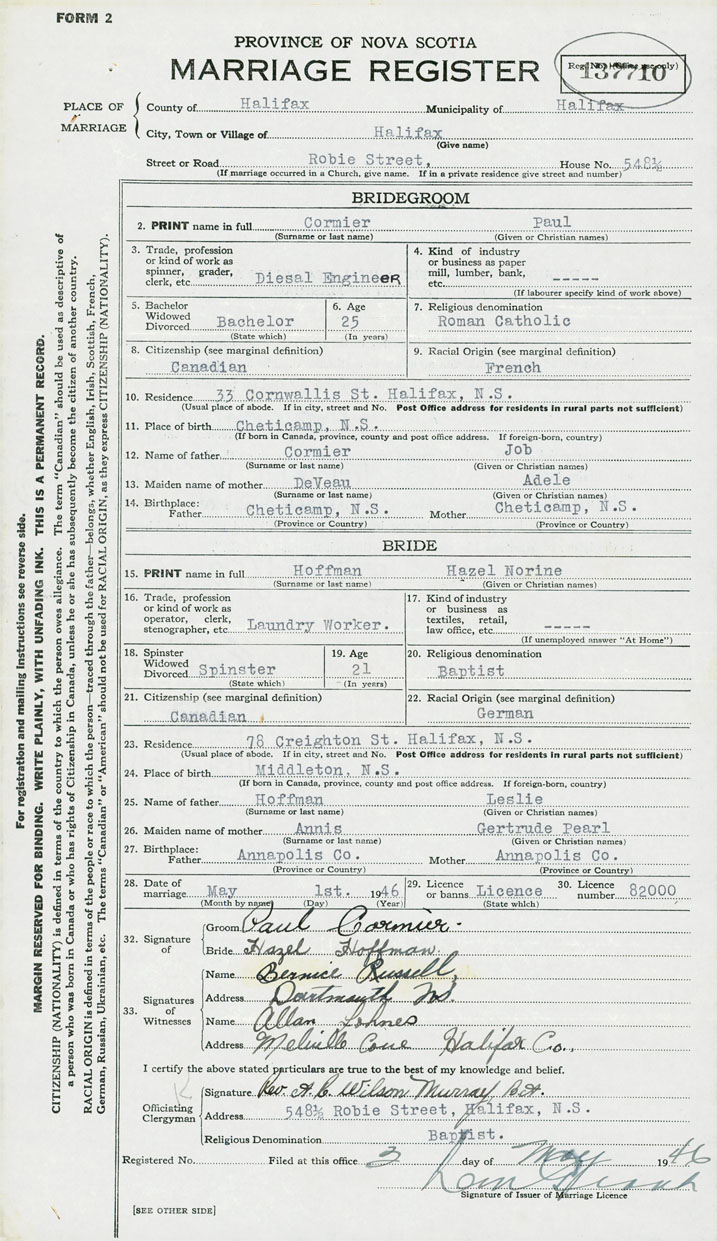 FORM 2
PROVINCE OF NOVA SCOTIA
MARRIAGE REGISTER
137710
PLACE OF MARRIAGE
County of Halifax Municipality of Halifax
City, Town or Village of Halifax
(Give name)
Street or Road Robie Street, House No. 548½
(If marriage occurred in a Church, give name. If in a private residence give street and number)
BRIDEGROOM
2. PRINT name in full Cormier Paul
(Surname or last name) (Given or Christian names)
3. Trade, profession or kind of work as spinner, grader, clerk, etc. Diesal EngineER
4. Kind of industry or business as paper mill, lumber, bank, etc. -----
(If labourer specify kind of work above)
5. Bachelor Widowed Divorced Bachelor
(State which)
6. Age 25
(In years)
7. Religious denomination
Roman Catholic
8. Citizenship (see marginal definition)
Canadian
9. Racial Origin (see marginal definition)
French
10. Residence 33 Cornwallis St. Halifax, N.S.
(Usual place of abode. If in city, street and No. Post Office address for residents in rural parts not sufficient)
11. Place of birth Cheticamp, N.S.
(If born in Canada, province, county and post office address. If foreign-born, country)
12. Name of father Cormier Job
(Surname or last name) (Given or Christian names)
13. Maiden name of mother DeVeau Adele
(Surname or last name) (Given or Christian names)
14. Birthplace: Father Cheticamp, N.S. Mother Cheticamp, N.S.
(Province or Country) (Province or Country)
BRIDE
15. PRINT name in full Hoffman Hazel Norine
(Surname or last name) (Given or Christian names)
16. Trade, profession or kind of work as operator, clerk, stenographer, etc. Laundry Worker.
17. Kind of industry or business as textiles, retail, law office, etc. -----
(If unemployed answer "At Home")
18. Spinster Widowed Divorced Spinster
(State which)
19. Age 21
(In years)
20. Religious denomination
Baptist
21. Citizenship (see marginal definition)
Canadian
22. Racial Origin (see marginal definition)
German
23. Residence 78 Creighton St. Halifax, N.S.
(Usual place of abode. If in city, street and No. Post Office address for residents in rural parts not sufficient)
24. Place of birth Middleton, N.S.
(If born in Canada, province, county and post office address. If foreign-born, country)
25. Name of father Hoffman Leslie
(Surname or last name) (Given or Christian names)
26. Maiden name of mother Annis Gertrude Pearl
(Surname or last name) (Given or Christian names)
27. Birthplace: Father Annapolis Co. Mother Annapolis Co.
(Province or Country) (Province or Country)
28. Date of marriage May 1st. 1946
(Month by name) (Day) (Year)
29. Licence or banns Licence
(State which)
30. Licence number 82000
32. Signature of
Groom Paul Cormier
Bride Hazel Hoffman
33. Signatures of Witnesses
Name Bernice Russell,
Address Dartmouth N.S.
Name Allan Lohnes
Address Melville Cove Halifax Co.,
I certify the above stated particulars are true to the best of my knowledge and belief.
Officiating Clergyman
Signature Rev. A. C. Wilson Murray B.A.
Address 548½ Robie Street, Halifax, N.S.
Religious Denomination Baptist.
Registered No. Filed at this office 3 day of May 1946
Signature of Issuer of Marriage Licence
[SEE OTHER SIDE]
For registration and mailing instructions see reverse side.
MARGIN RESERVED FOR BINDING. WRITE PLAINLY, WITH UNFADING INK. THIS IS A PERMANENT RECORD.
CITIZENSHIP (NATIONALITY) is defined in terms of the country to which the person owes allegiance. The term "Canadian" should be used as descriptive of
a person who was born in Canada or who has rights of Citizenship in Canada, unless he or she has subsequently become the citizen of another country.
RACIAL ORIGIN is defined in terms of the people or race to which the person—traced through the father—belongs, whether English, Irish, Scottish, French,
German, Russian, Ukrainian, etc. The terms "Canadian" or "American" should not be used for RACIAL ORIGIN, as they express CITIZENSHIP (NATIONALITY).